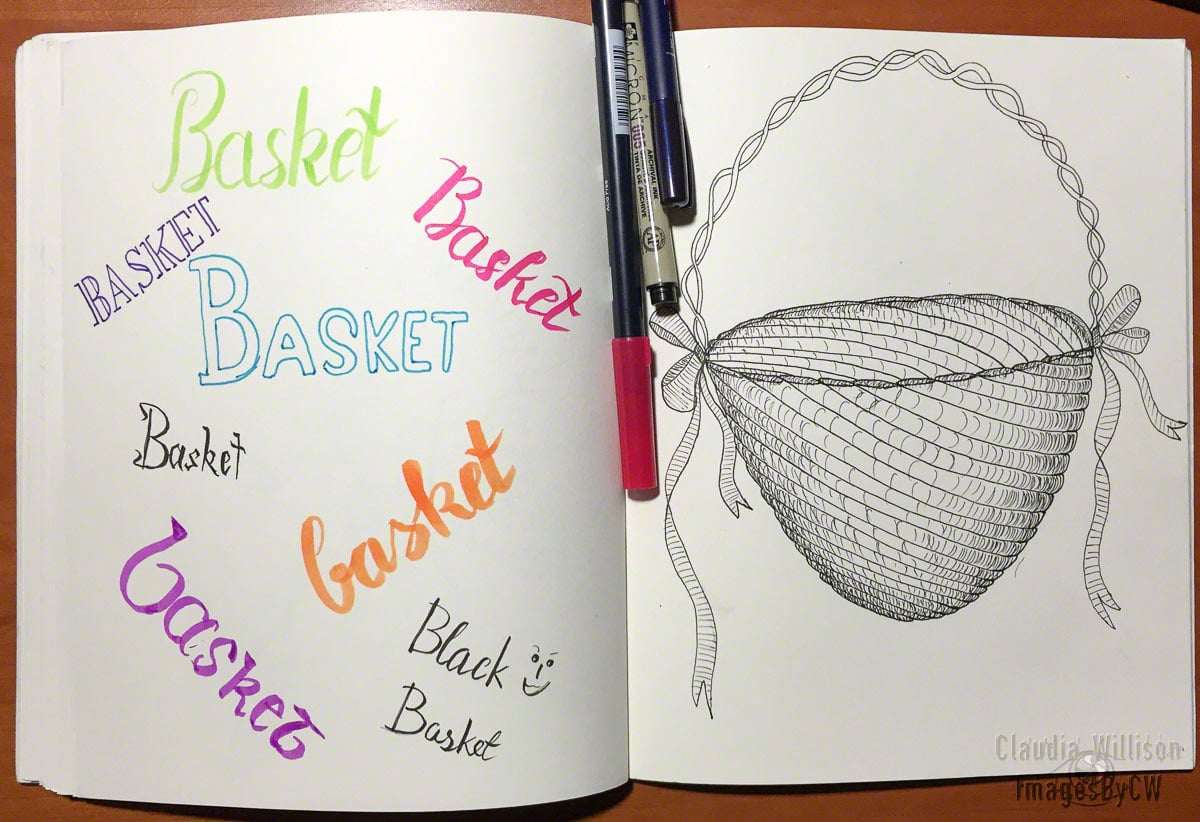 Basket
BASKET
Basket
BASKET
Basket
basket
basket
Black
Basket
MICRON
005
ARCHIVAL INK
TINTA DE ARCHIVE
Claudia Willison
ImagesByCW